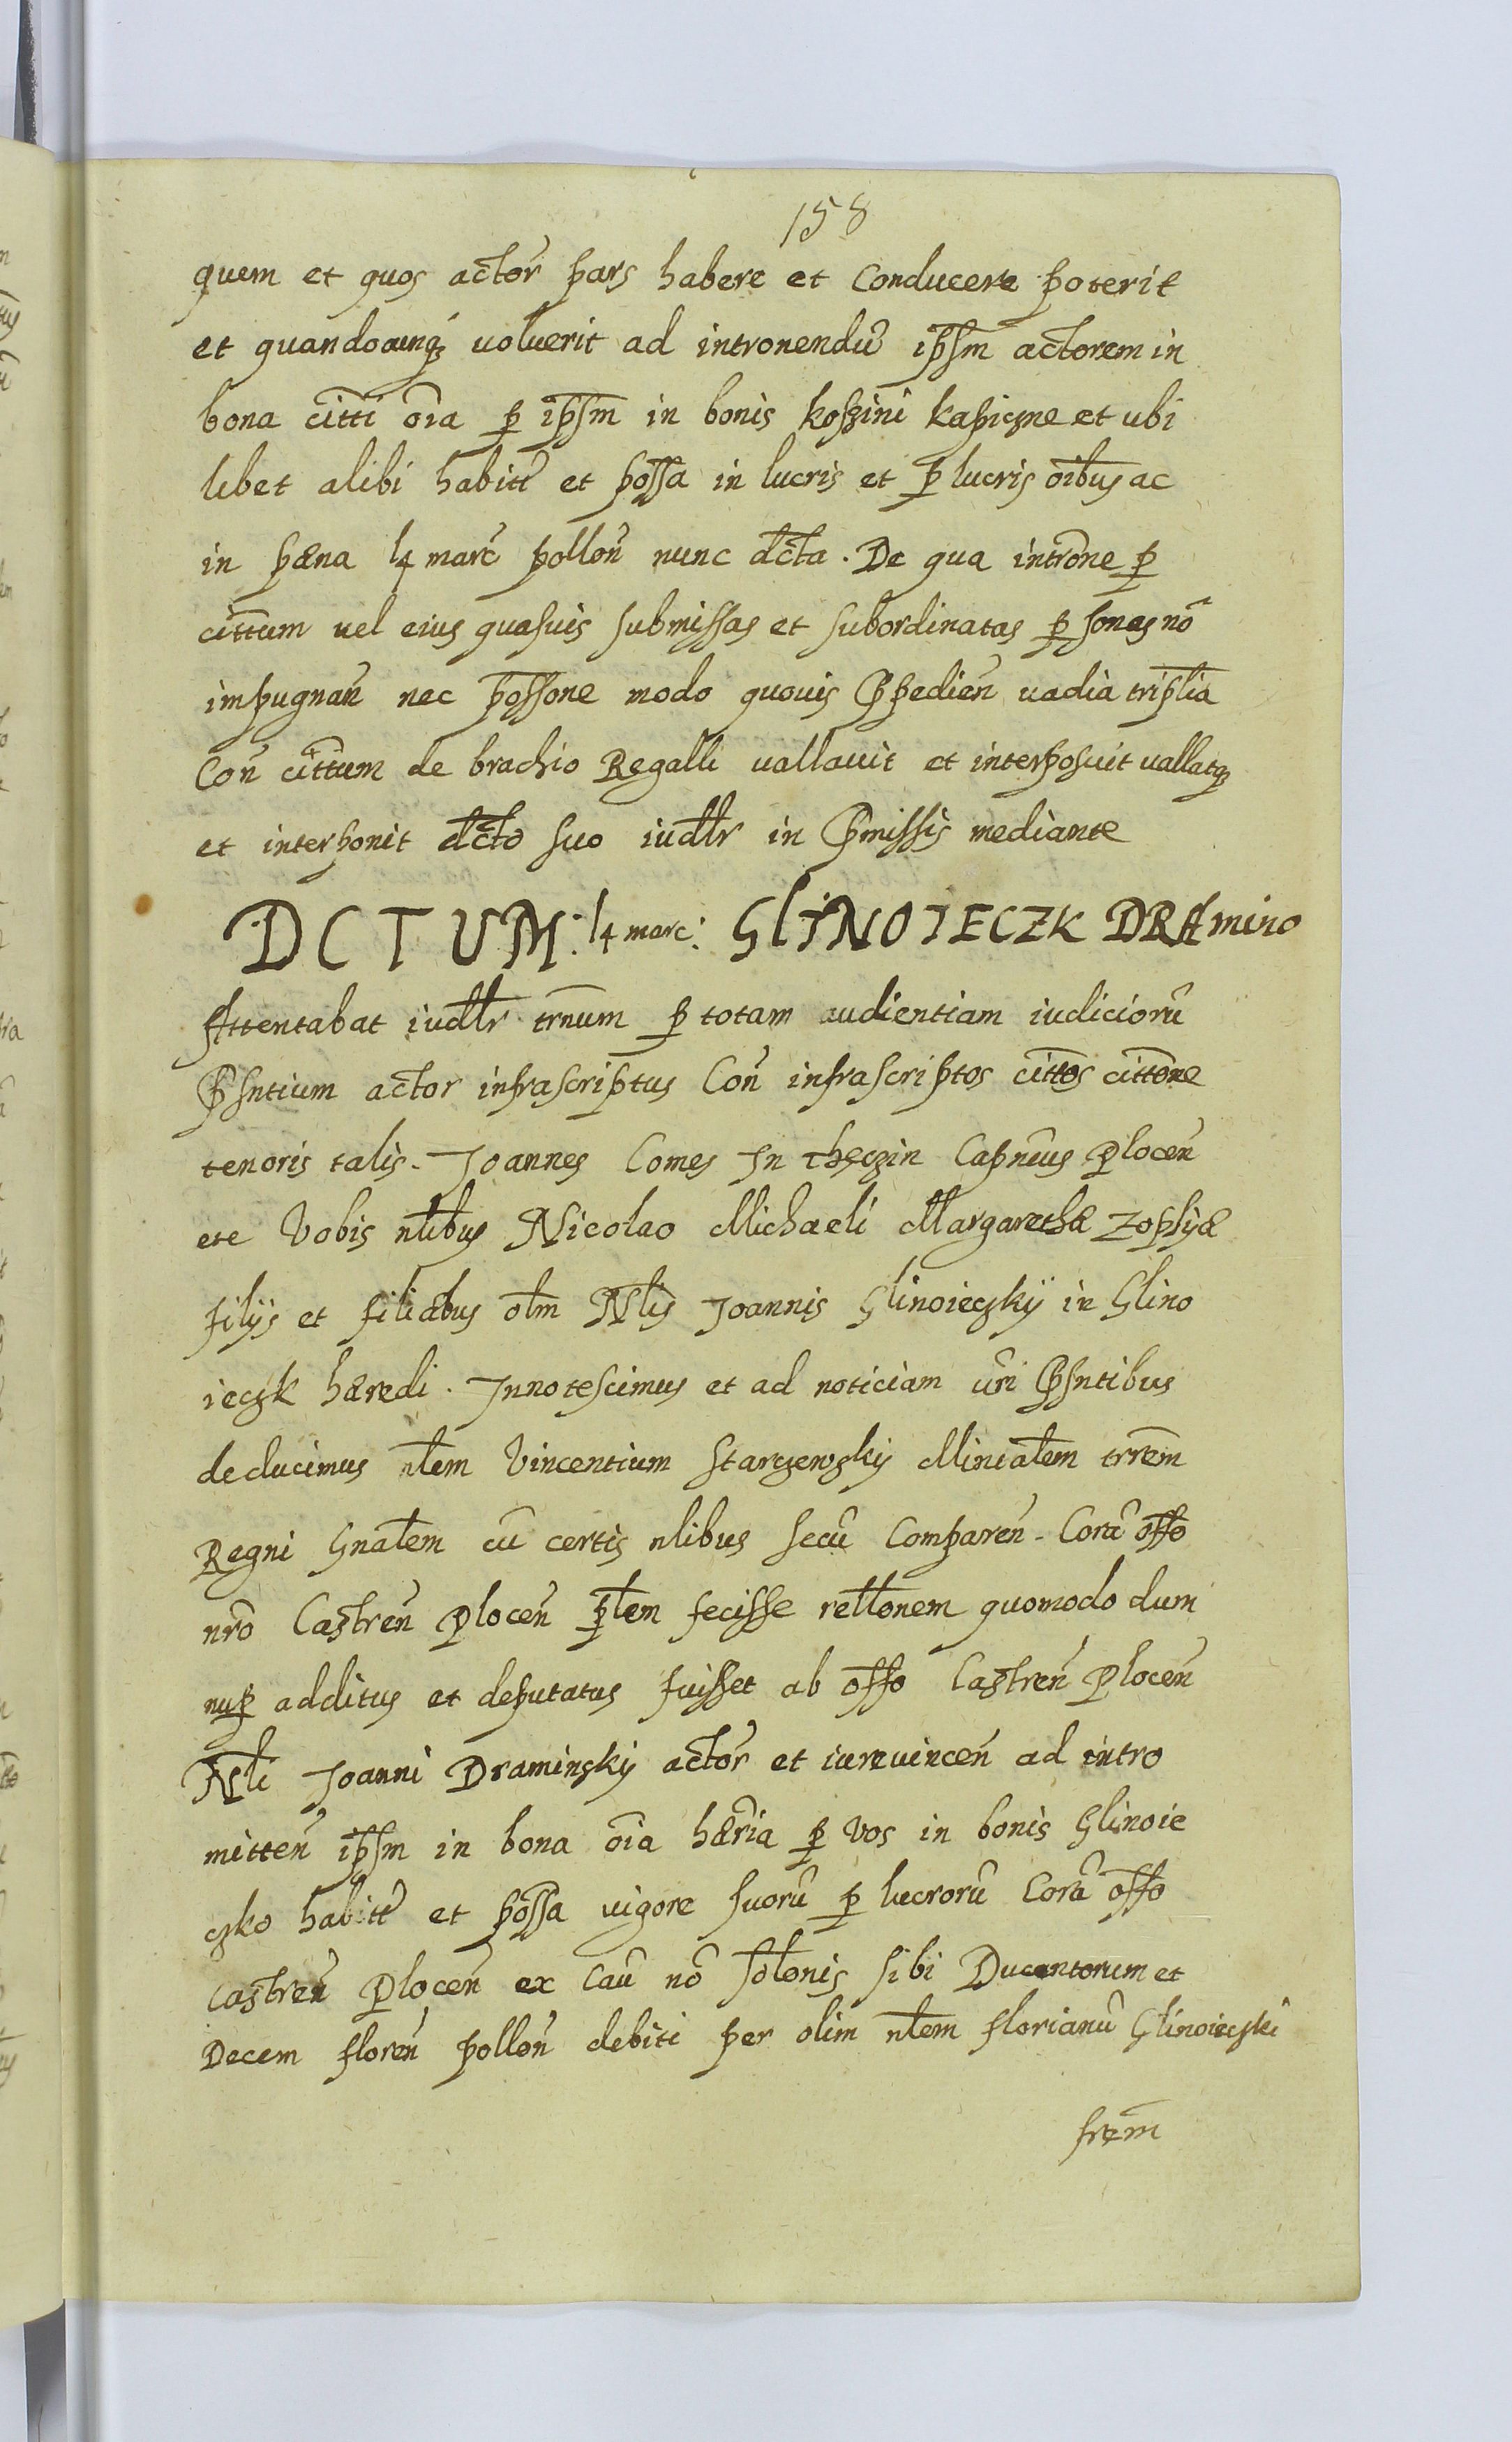 158
quem et quos actor̃ pars habere et Conducere poterit
et quandocunq̃ voluerit ad intronendũ ip̃sm actorem in
bona citti õia p̱ ip̃sm in bonis koszini kapiczne et ubi
libet alibi habitt̃ et põssa in lucris et p̱ lucris õibus ac
in pæna 14 marc̃ polloñ nunc dc̃ta. De qua intrõne p̱
cittum uel eius quasuis submissas et subordinatas p̱sonas nõ
impugnañ nec põssone modo quouis p̃pedieñ uadia trip̃lia
Coñ cittum de brachio Regalli vallauit et interposuit vallatq̃
et interponit dc̃to suo iudlr̃ in p̃missis mediante
DCTUM: 14 marc: GLINOIECZK DRAmino
Attentabat iudlr̃ trñum p̱ totam audientiam iudiciorũ
p̃sntium actor infrascriptus Coñ infrascriptos cittos cittone
tenoris talis. Joannes Comes In theczin Capneus Ploceñ
etc Vobis nlibus Nicolao Michaeli Margarethæ Zophyæ
filijs et filiabus olm̃ Nlis Joannis Glinoieczkÿ in Glino
ieczk hæredi. Innotescimus et ad noticiam ur̃i p̃sntibus
deducimus nlem Vincentium Starzewskÿ Minialem trrem̃
Regni Gnalem cũ certis nlibus secũ Compareñ. Corã õffo
nrõ Castreñ Ploceñ p̱lem fecisse rellonem quomodo dum
nup̱ additus et deputatus fuisset ab õffo Castreñ Ploceñ
Nli Joanni Draminskÿ actor̃ et iurevinceñ ad intro
mitteñ ip̃sm in bona õia hær̃ia p̱ vos in bonis Glinoie
czko habitt̃ et põssa uigore suorũ p̱ lucrorũ Corã õffo
Castreñ Ploceñ ex Caũ nõ sõlonis sibi Ducentorum et
Decem floreñ polloñ debiti per olim nlem florianũ Glinoieczki
frem̃